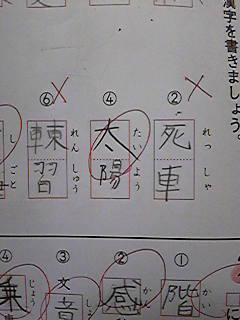 漢字を書きましょう。
②
れっしゃ
死車
④
たいよう
太陽
⑥
れんしゅう
習
しごと
①
かい
階
に
②
かん
感
③
文
しょ
④
じょう
乗